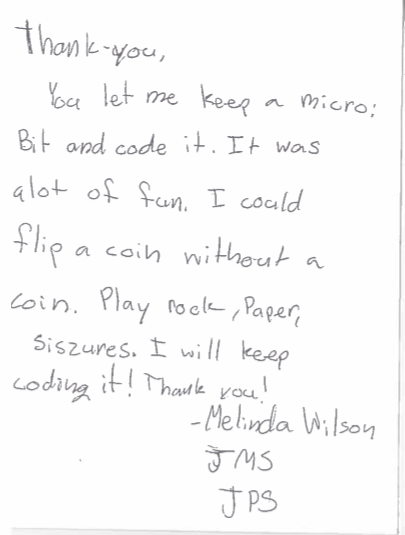 Thank-you,
You let me keep a micro:
Bit and code it. It was
alot of fun. I could
flip a coin without a
coin. Play rock, Paper,
siszures. I will keep
coding it! Thank you!
-Melinda Wilson
JMS
JPS